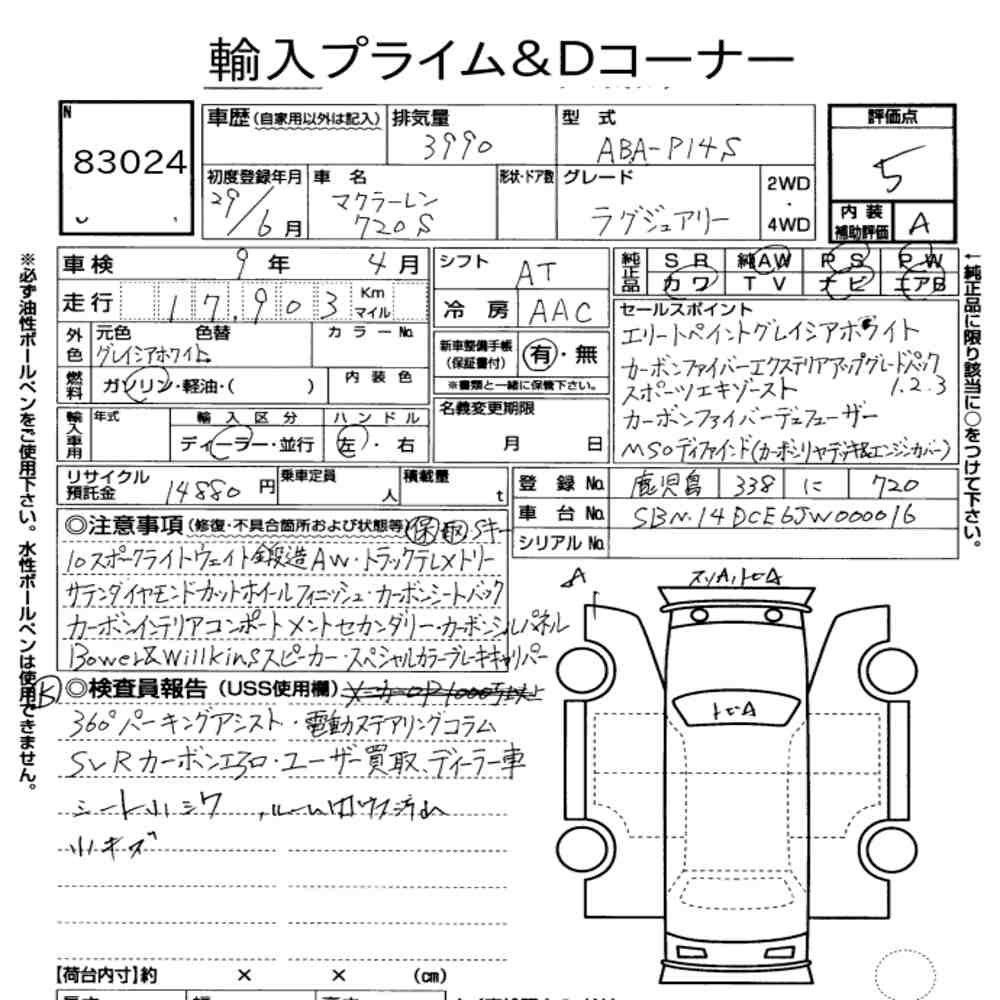 輸入プライム＆Dコーナー
N
83024
車歴(自家用以外は記入)
排気量
3990
型 式
ABA-P14S
評価点
5
初度登録年月
29/6月
車 名
マクラーレン
720S
形状・ドア数
グレード
ラグジュアリー
2WD
・
4WD
内装
補助評価
A
車検 9年 4月
シフト AT
純正品
SR 純AW PS PW
カワ TV ナビ エアB
走行 17,903 Km マイル
冷房 AAC
セールスポイント
エリートペイントグレイシアホワイト
カーボンファイバーエクステリアアップグレードパック
1.2.3
スポーツエキゾースト
カーボンファイバーデュフューザー
MSOディファインド(カーボンリヤデッキ&エンジンカバー)
外色
元色 色替
グレイシアホワイト
カラーNo.
新車整備手帳
(保証書付)
有・無
※書類と一緒に保管下さい。
燃料
ガソリン・軽油・( )
内装色
輸入車用
年式
輸入区分
ディーラー・並行
ハンドル
左・右
名義変更期限
月 日
リサイクル
預託金 14880円
乗車定員
人
積載量
t
登録No. 鹿児島 338 に 720
車台No. SBM14DCE6JW000016
シリアルNo.
◎注意事項(修復・不具合箇所および状態等) 保 取 Sキー
10スポークライトウェイト鍛造AW・トラックテレメトリー
サテンダイヤモンドカットホイールフィニッシュ・カーボンシートバック
カーボンインテリアコンポートメントセカンダリー・カーボンシルパネル
Bower&Willkinsスピーカー・スペシャルカラーブレーキキャリパー
◎検査員報告(USS使用欄)
360°パーキングアシスト・電動ステアリングコラム
SVRカーボンエアロ・ユーザー買取、ディーラー車
シート小シワ
小キズ
A
スリA,トビA
トビA
【荷台内寸】約 × × (cm)
※必ず油性ボールペンをご使用下さい。水性ボールペンは使用できません。
←純正品に限り該当に○をつけて下さい。